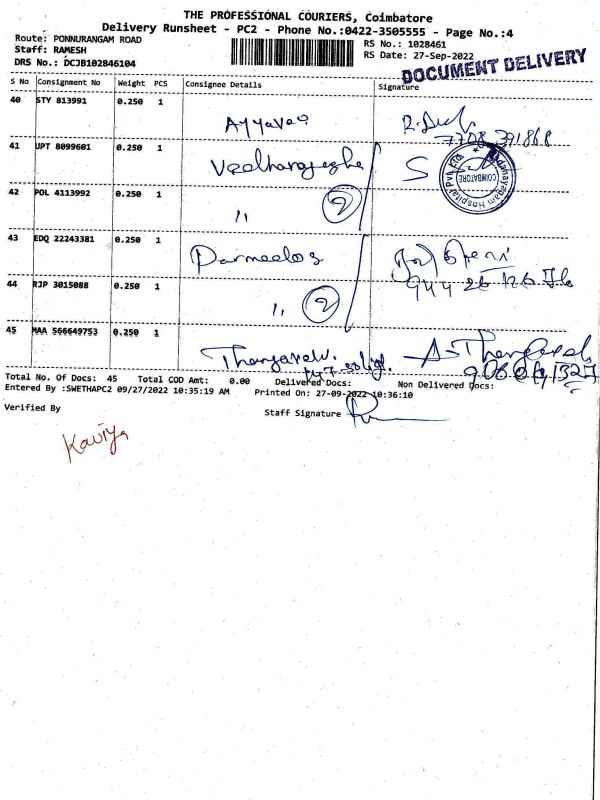 THE PROFESSIONAL COURIERS, Coimbatore
Delivery Runsheet - PC2 - Phone No.:0422-3505555 - Page No.:4
Route: PONNURANGAM ROAD
RS No.: 1028461
Staff: RAMESH
RS Date: 27-Sep-2022
DRS No.: DCJB102846104
DOCUMENT DELIVERY
S No Consignment No Weight PCS Consignee Details Signature
40 STY 813991 0.250 1
7708 391868
41 UPT 8099601 0.250 1
COIMBATORE
42 POL 4113992 0.250 1 " 2
43 EDQ 22243381 0.250 1
44 RJP 3015088 0.250 1 " 2
45 MAA 566649753 0.250 1
Thangavelu.
Total No. Of Docs: 45 Total COD Amt: 0.00 Delivered Docs: Non Delivered Docs:
Entered By :SWETHAPC2 09/27/2022 10:35:19 AM Printed On: 27-09-2022 10:36:10
Verified By Staff Signature
Kaviya